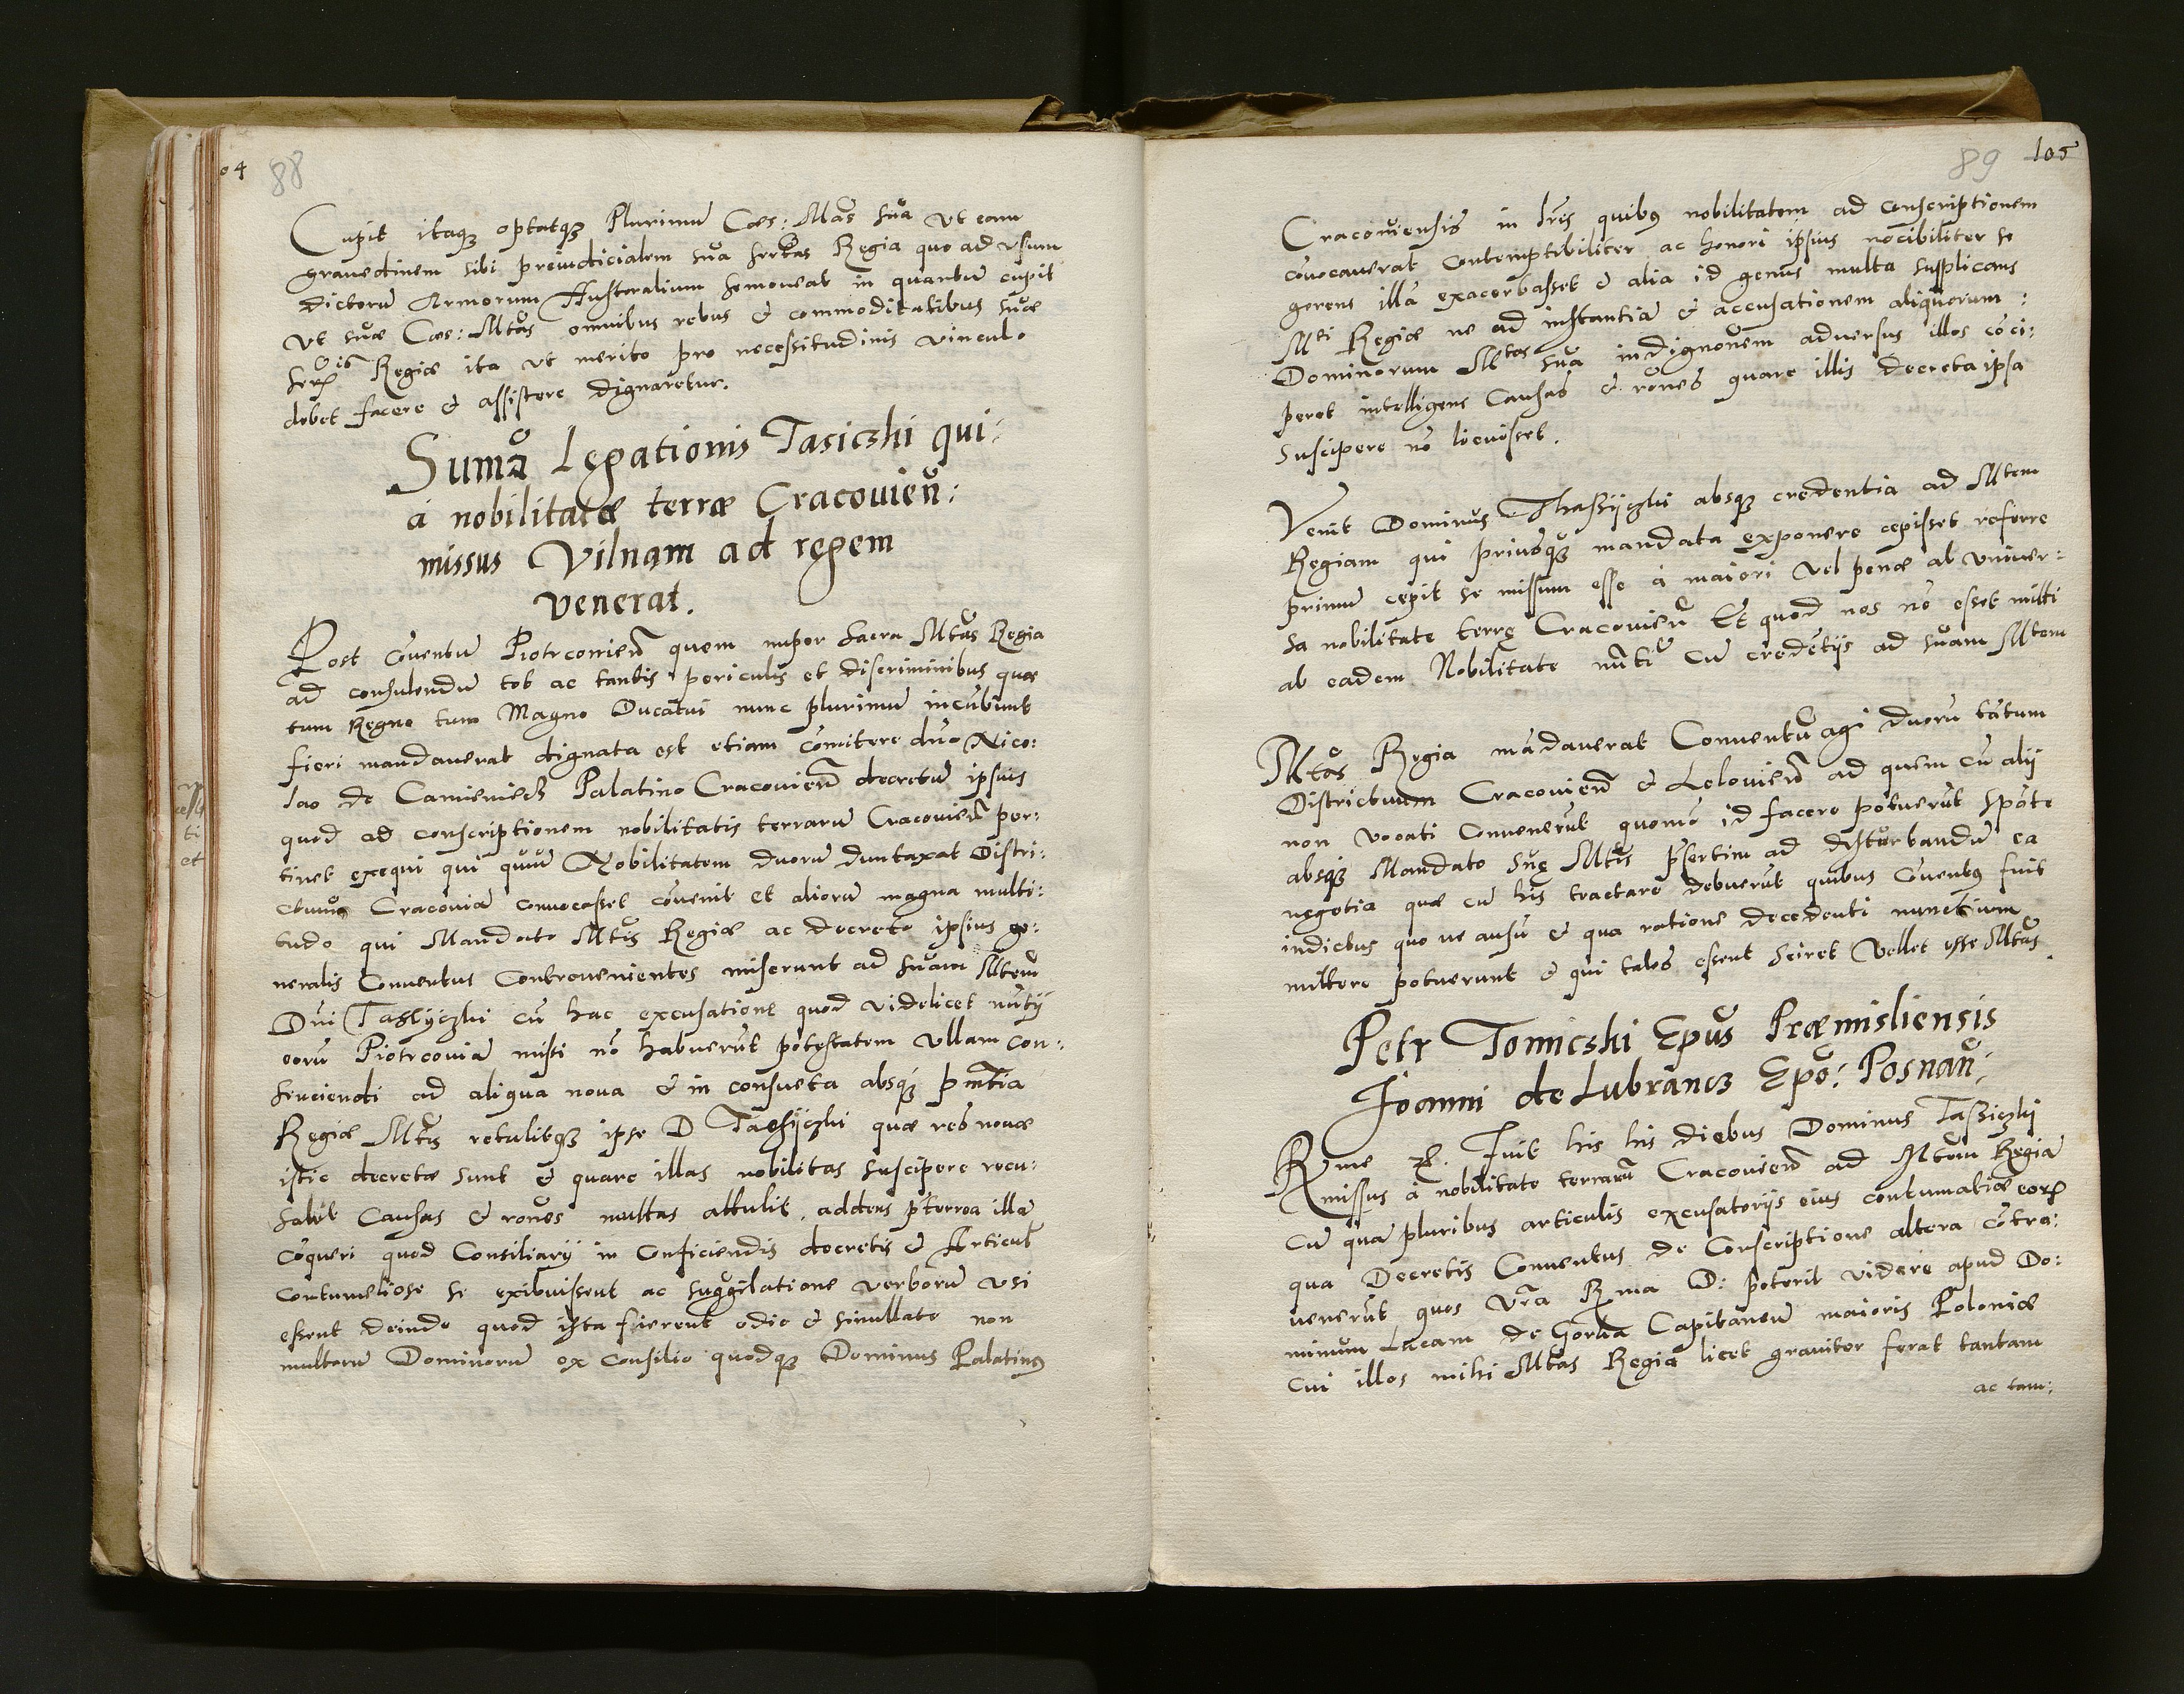 04 88
Cupit itaqȝ optatqȝ Plurimū Cæs: Mas sua Vt eam
grauedinem sibi preiudicialem sua sertas Regia quo ad vsum
dictorū Armorum Australium semoueat in quantū cupit
Vt suæ Cæs: Mtas omnibus rebus & commoditatibus suæ
Regiæ ita vt merito pro necessitudinis vinculo
debet facere & assistere dignaretur.
Sumā Legationis Tasiczki qui
á nobilitatæ terræ Cracovień:
missus Vilnam ad regem
venerat.
Post cōuentū Piotrcouień quem nuper sacra Mtas Regia
ad consulendū tot ac tantis periculis et discriminibus quæ
tum Regno tum Magno Ducatui nunc plurimū incūbunt
fieri mandauerat dignata est etiam cōmitere dno Nico:
lao de Camieniecz Palatino Cracouień decretū ipsius
quod ad conscriptionem nobilitatis terrarū Cracouień per:
tinet exequi qui quum Nobilitatem duorū duntaxat Distri:
ctuum Cracouiā conuocasset cōuenit et aliorū magna multi:
tudo qui Mandato Mtis Regiæ ac decreto ipsius ge:
neralis Conuentus Controuenientes miserunt ad suam Mtem
Dni Taszyczki cū hac excusatione quod videlicet nūtij
eorū Piotrcouiā missi nō habuerūt potestatem vllam con:
sinciendi ad aliqua noua & in consueta absqȝ pmtia
Regiæ Mtis retulitqȝ ipse D Tassijczki quæ res nouæ
istic decretæ sunt & quare illas nobilitas suscipere recu:
saūt causas & rones multas attulit, addens pterrea illā
cōqueri quod Consiliarij in Conficiendis decretis & Articul
contumeliose se exibuissent ac suggilatione verborū vsi
essent deinde quod ista fierent odio & simultate non
multorū Dominorū ex consilio quodqȝ Dominus Palatinȝ
89 105
Cracouiensis in lris quibȝ nobilitatem ad conscriptionem
cōuocauerat contemptibiliter ac honori ipsius nocibiliter se
gerens illā exacerbasset & alia id genus multa supplicans
Mti Regiæ ne ad instantiā & accusationem aliquorum:
Dominorum Mtas sua indignonem aduersus illos cō ci:
peret intelligens Causas & rones quare illis decreta ipsa
suscipere nō licuisset.
Venit Dominus Thassijczki absqȝ credentia ad Mtem
Regiam qui priusqȝ mandata exponere cepisset referre
primū cepit se missum esse á maiori vel penæ ab vniuer:
sa nobilitate terrę Cracouień Et quod nos nō esset mitti
ab eadem Nobilitate nūti cū credētijs ad suam Mtem
Mtas Regia mādauerat Conuentū agi duorū tātum
Districtuum Cracouień & Leloviēn ad quem cū alij
non vocati Conuenerūt quomō id facere potuerūt spōte
absqȝ Mandato suę Mtis psertim ad disturbandū ea
negotia quæ cū his tractare debuerūt quibus Cōuentȝ fuit
indictus quo ue ausū & qua ratione decedenti nunctium
mittere potuerunt & qui tales essent sciret Vellet esse Mtas.
Petr Tomicski Epūs Præmisliensis
Joanni de Lubrancz Epō: Posnań:
Rme zc. Fuit his his diebus Dominus Tassiczki
missus á nobilitate terrarū Cracouień ad Mtem Regiā
cū quā pluribus articulis excusatorijs eius contumatiæ eorꝝ
qua Decretis Conuentus de Conscriptione altera cōtra:
uenerūt quos Vra Rma D: poterit videre apud Do:
minum Lucam de Gorka Capitaneū maioris Poloniæ
cui illos mihi Mtas Regia licet grauiter ferat tantam
ac tam: